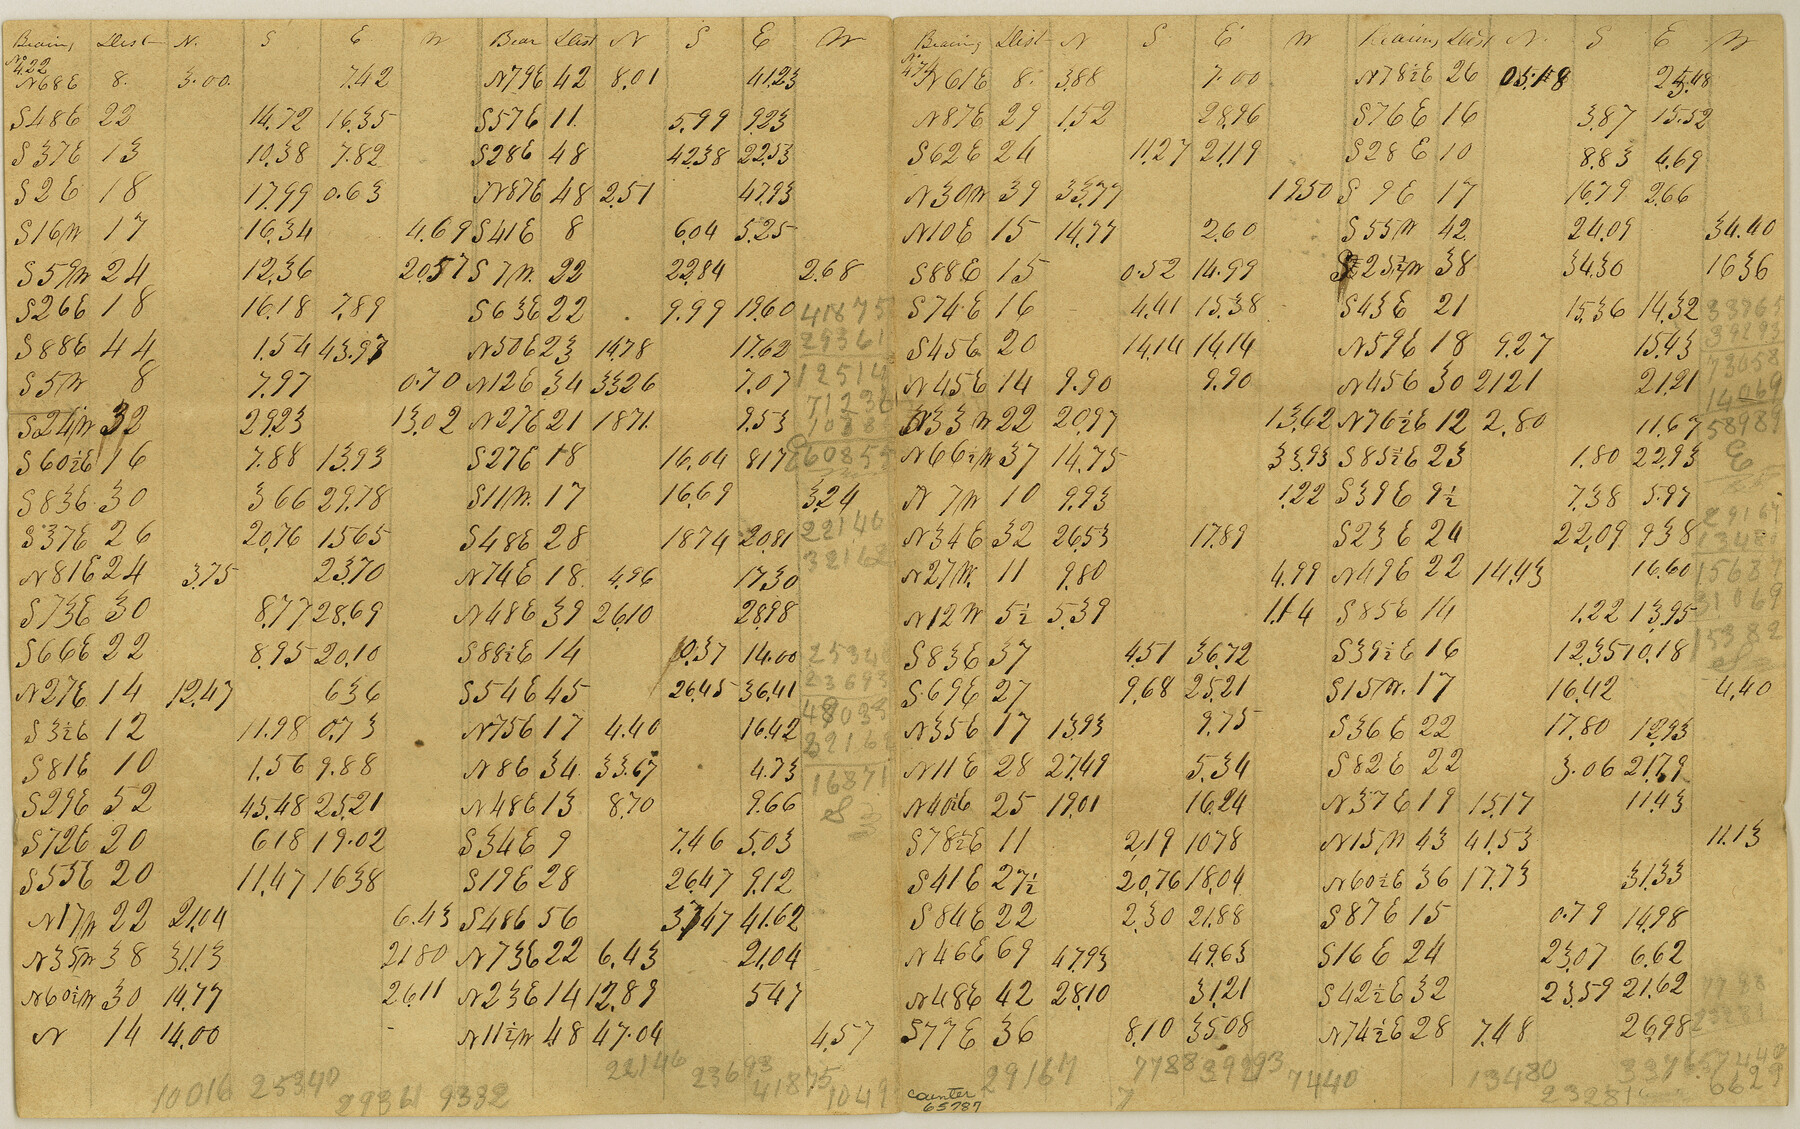 Bearing Dist N. S E W Bear Dist N S E W Bearing Dist N S E W Bearing Dist N. S E W
No 422 No 474
N68E 8. 3.00. 7.42 N79E 42 8.01 41.23 N61E 8. 3.88 7.00 N78½E 26 05.18 25.48
S48E 22 14.72 16.35 S57E 11. 5.99 9.23 N87E 29 1.52 28.96 S76E 16 3.87 15.52
S37E 13 10.38 7.82 S28E 48 42.38 22.53 S62E 24 11.27 21.19 S28E 10 8.83 4.69
S2E 18 17.99 0.63 N87E 48 2.51 47.93 N30W 39 33.77 19.50 S 9E 17 16.79 2.66
S16W 17 16.34 4.69 S41E 8 6.04 5.25 N10E 15 14.77 2.60 S55W 42 24.09 34.40
S59W 24 12.36 20.57 S7W. 22 22.84 2.68 S88E 15 0.52 14.99 S25½W 38 34.30 16.36
S26E 18 16.18 7.89 S63E 22 9.99 19.60 41875 S74E 16 4.41 15.38 S43E 21 15.36 14.32 33765
S88E 44 1.54 43.97 N50E 23 14.78 17.62 29361 S45E 20 14.14 14.14 N59E 18 9.27 15.43 39293
S5W 8 7.97 0.70 N12E 34 33.26 7.07 12514 N45E 14 9.90 9.90 N45E 30 21.21 21.21 73058
S24W 32 29.23 13.02 N27E 21 18.71 9.53 71236 N33W 22 20.97 13.62 N76½E 12 2.80 11.67 14069 58989
S60½E 16 7.88 13.93 S27E 18 16.04 8.17 E 60855 N66½W 37 14.75 33.93 S85½E 23 1.80 22.93 E
S83E 30 3.66 29.78 S11W. 17 16.69 3.24 N 7W 10 9.93 1.22 S39E 9½ 7.38 5.97
S37E 26 20.76 15.65 S48E 28 18.74 20.81 22146 N34E 32 26.53 17.89 S23E 24 22.09 9.38 29167
N81E 24 3.75 23.70 N74E 18. 4.96 17.30 32162 N27W. 11 9.80 4.99 N49E 22 14.43 16.60 13480 15687
S73E 30 8.77 28.69 N48E 39 26.10 28.98 N12W 5½ 5.39 1.14 S85E 14 1.22 13.95 31069
S66E 22 8.95 20.10 S88½E 14 0.37 14.00 25340 S83E 37 4.51 36.72 S39½E 16 12.35 10.18 15382
N27E 14 12.47 6.36 S54E 45 26.45 36.41 23693 S69E 27 9.68 25.21 S15W. 17 16.42 4.40
S3½E 12 11.98 0.73 N75E 17 4.40 16.42 49033 N35E 17 13.93 9.75 S36E 22 17.80 12.93
S81E 10 1.56 9.88 N8E 34 33.67 4.73 32162 N11E 28 27.49 5.34 S82E 22 3.06 21.79
S29E 52 45.48 25.21 N48E 13 8.70 9.66 16871 S N40½E 25 19.01 16.24 N37E 19 15.17 11.43
S72E 20 6.18 19.02 S34E 9 7.46 5.03 S78½E 11 2.19 10.78 N15W 43 41.53 11.13
S55E 20 11.47 16.38 S19E 28 26.47 9.12 S41E 27½ 20.76 18.04 N60½E 36 17.73 31.33
N17W 22 21.04 6.43 S48E 56 37.47 41.62 S84E 22 2.30 21.88 S87E 15 0.79 14.98
N35W 38 31.13 21.80 N73E 22 6.43 21.04 N46E 69 47.93 49.63 S16E 24 23.07 6.62
N60½W 30 14.77 26.11 N23E 14 12.89 5.47 N48E 42 28.10 31.21 S42½E 32 23.59 21.62
N 14 14.00 - N11½W 48 47.04 4.57 S77E 36 8.10 35.08 N74½E 28 7.48 26.98
10016 25340 29361 9332 22146 23693 41875 1049 29167 7788 39293 7440 13480 23281 33765 7440 6629
counter
65787